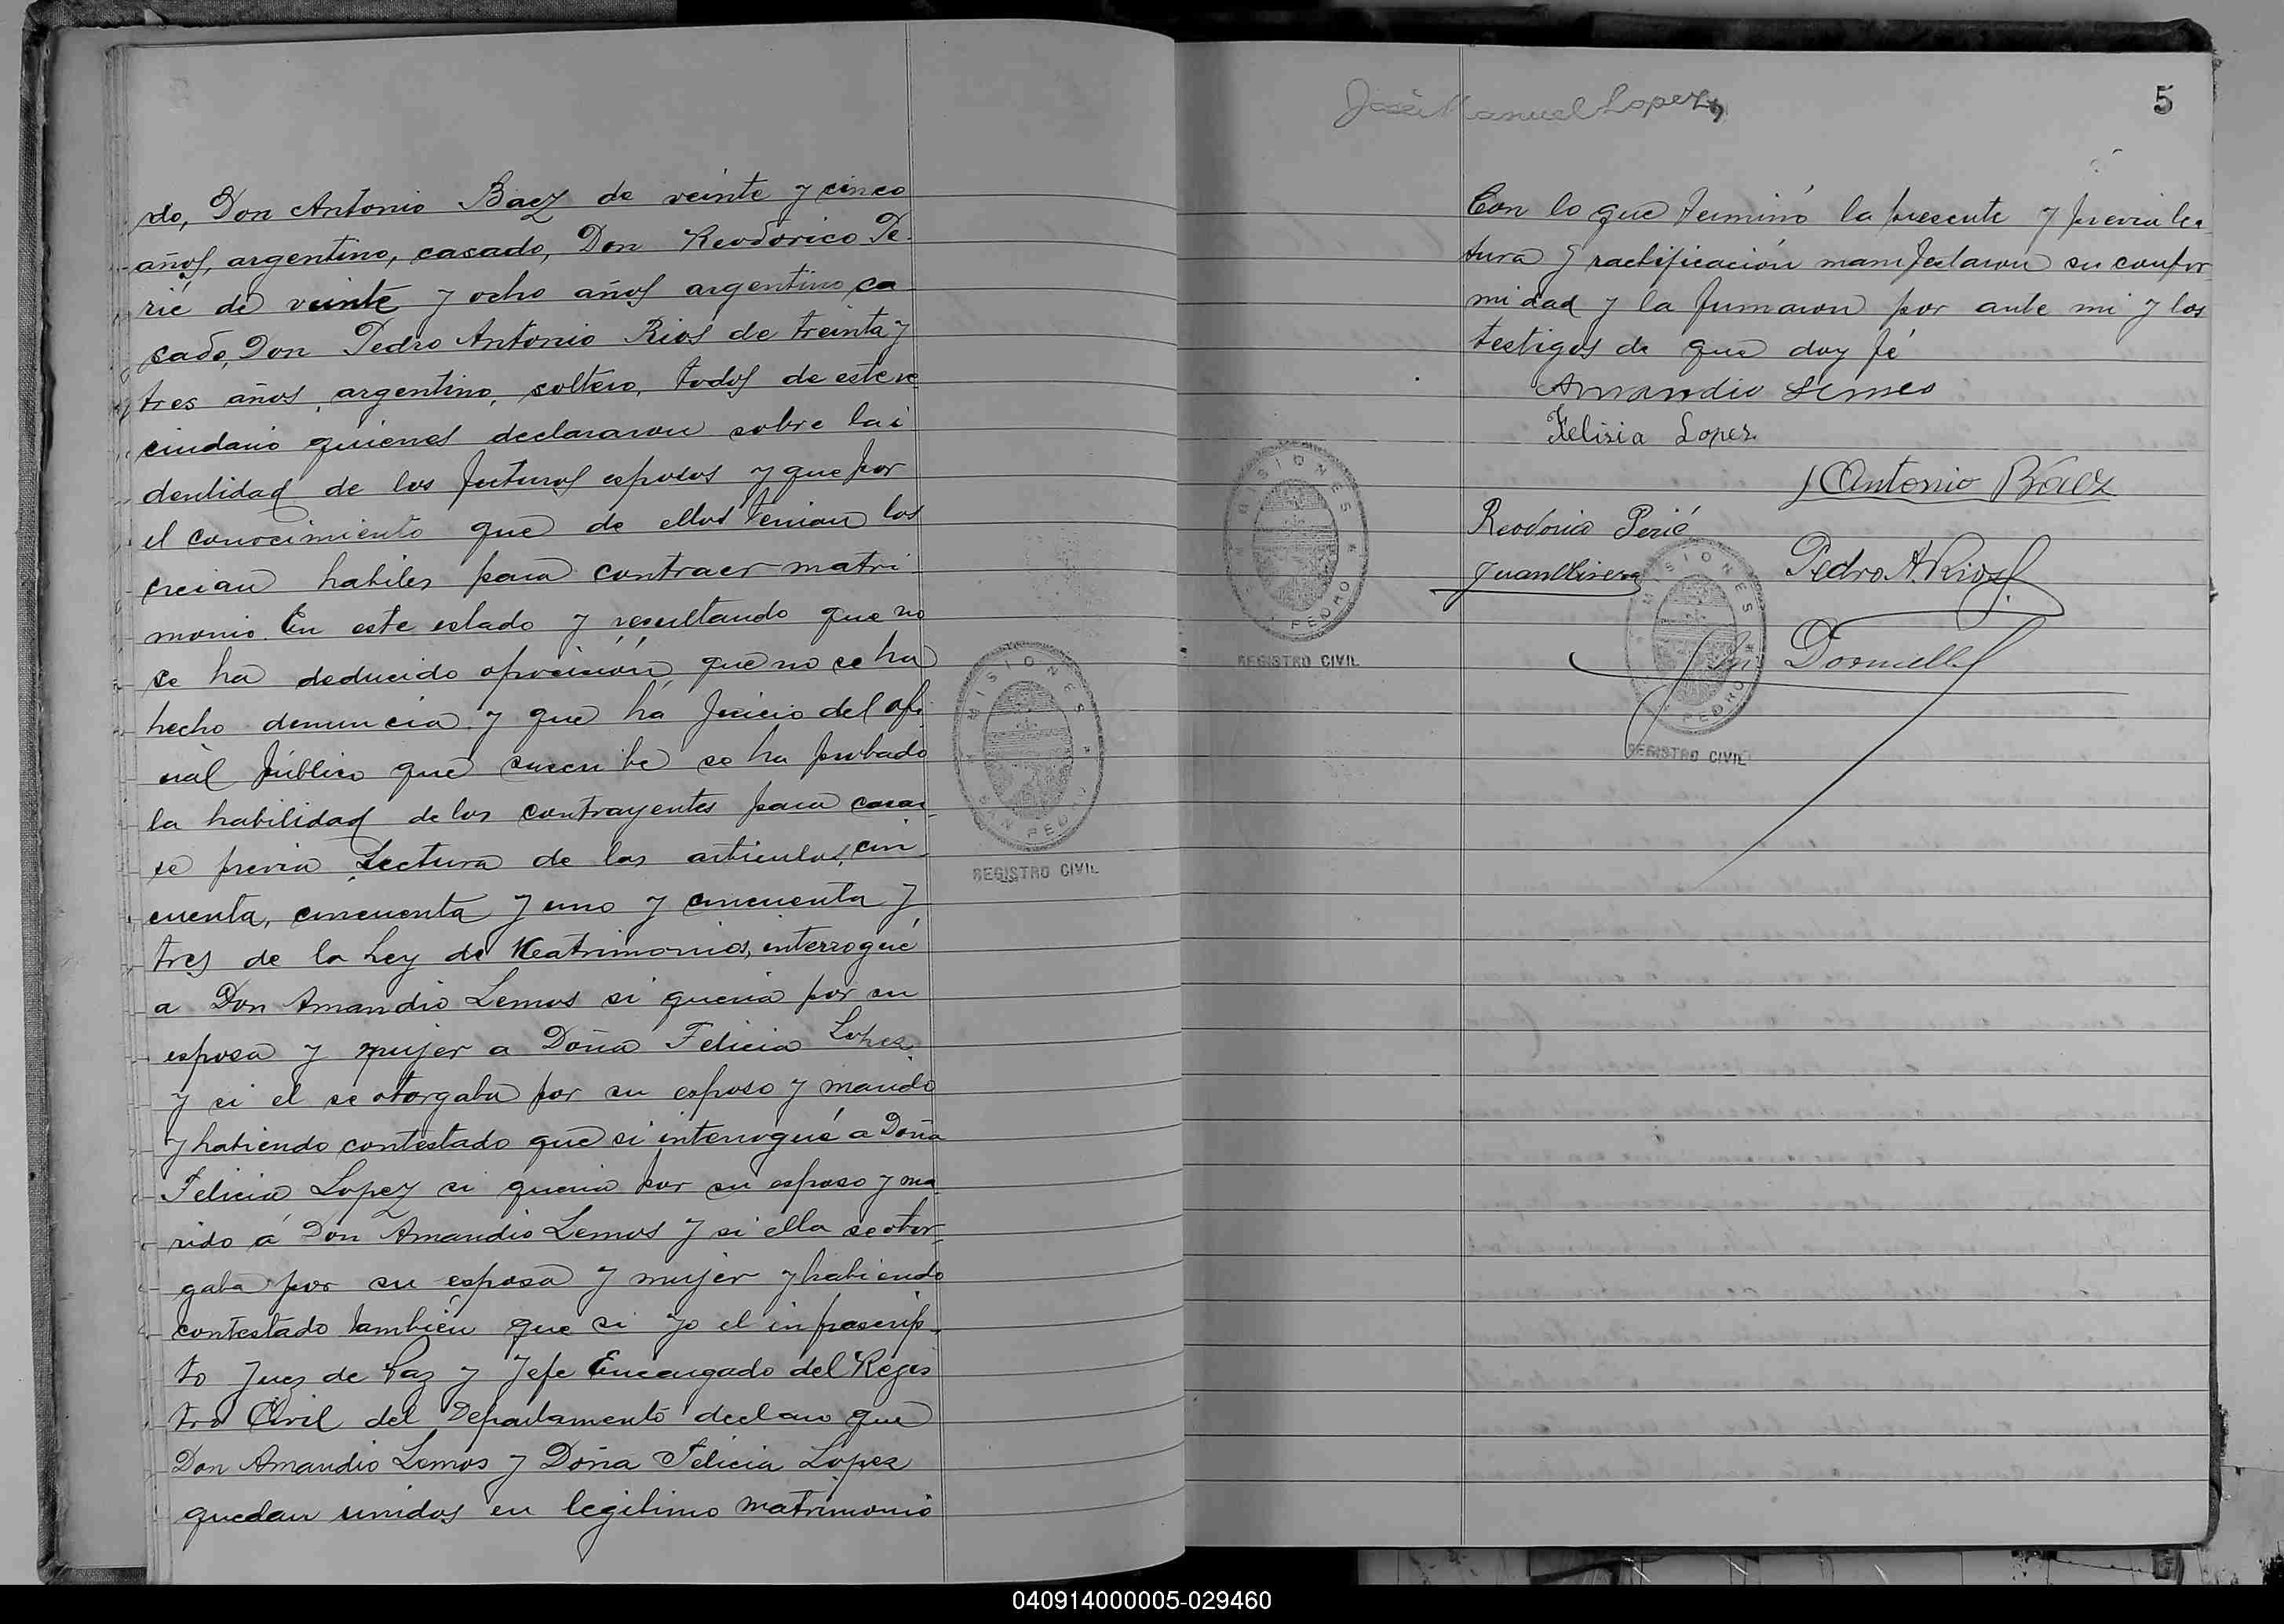 do, Don Antonio Baez de veinte y cinco
años, argentino, casado, Don Reodorico Pe-
rié de veinte y ocho años argentino ca
sado, Don Pedro Antonio Rios de treinta y
tres años, argentino, soltero, todos de este ve
cindario quienes declararon sobre la i
dentidad de los futuros esposos y que por
el conocimiento que de ellos tenian los
creian habiles para contraer matri-
monio. En este estado y resultando que no
se ha deducido oposición, que no se ha
hecho denuncia y que há juicio del ofi
cial público que suscribe se ha probado
la habilidad de los contrayentes para casar
se previa Lectura de los articulos, cin
cuenta, cincuenta y uno y cincuenta y
tres de la Ley de Matrimonios, interrogué
a Don Amandio Lemos si queria por su
esposa y mujer a Doña Felicia Lopez
y si el se otorgaba por su esposo y marido
y habiendo contestado que si interrogué a Doña
Felicia Lopez si queria por su esposo y ma
rido á Don Amandio Lemos y si ella se otor-
gaba por su esposa y mujer y habiendo
contestado también que si yo el infrascrip-
to Juez de Paz y Jefe Encargado del Regis
tro Civil del Departamento declaro que
Don Amandio Lemos y Doña Felicia Lopez
quedan unidos en legitimo matrimonio
MISIONES
SAN PEDRO
REGISTRO CIVIL
José Manuel Lopez
5
Con lo que terminó la presente y previa lec
tura y ractificación manifestaron su confor
midad y la firmaron por ante mi y los
testigos de que doy fé
Amandio Lemos
Felisia Lopez
Antonio Báez
Reodorico Perié
Pedro A. Rios
Juan Olivera
MISIONES
PEDRO
REGISTRO CIVIL
MISIONES
PEDRO
REGISTRO CIVIL
040914000005-029460